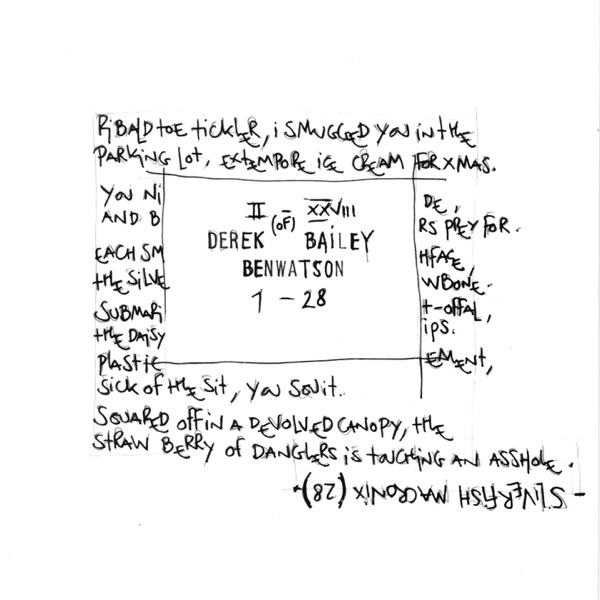 RiBALD toE tickLER, i SMUGGED YOU iN tHE
PARKiNG Lot, EXtEMPORE iCE CREAM FOR XMAS.
YOU Ni
AND B
EACH SM
tHE SiLVE
SUBMARi
tHE DAiSY
PLAStiC
II (OF) XXVIII
DEREK BAILEY
BEN WATSON
1 - 28
DE,
RS PREY FOR.
HFACE,
WBONE.
t-OFFAL,
iPS.
EMENT,
SiCK of tHE Sit, YOU
SQUARED off iN A DEVOLVED CANOPY, tHE
STRAW BERRY of DANGLERS iS toUCHiNG AN ASSHOLE.
- SiLVERFiSH MACRONiX (28) -